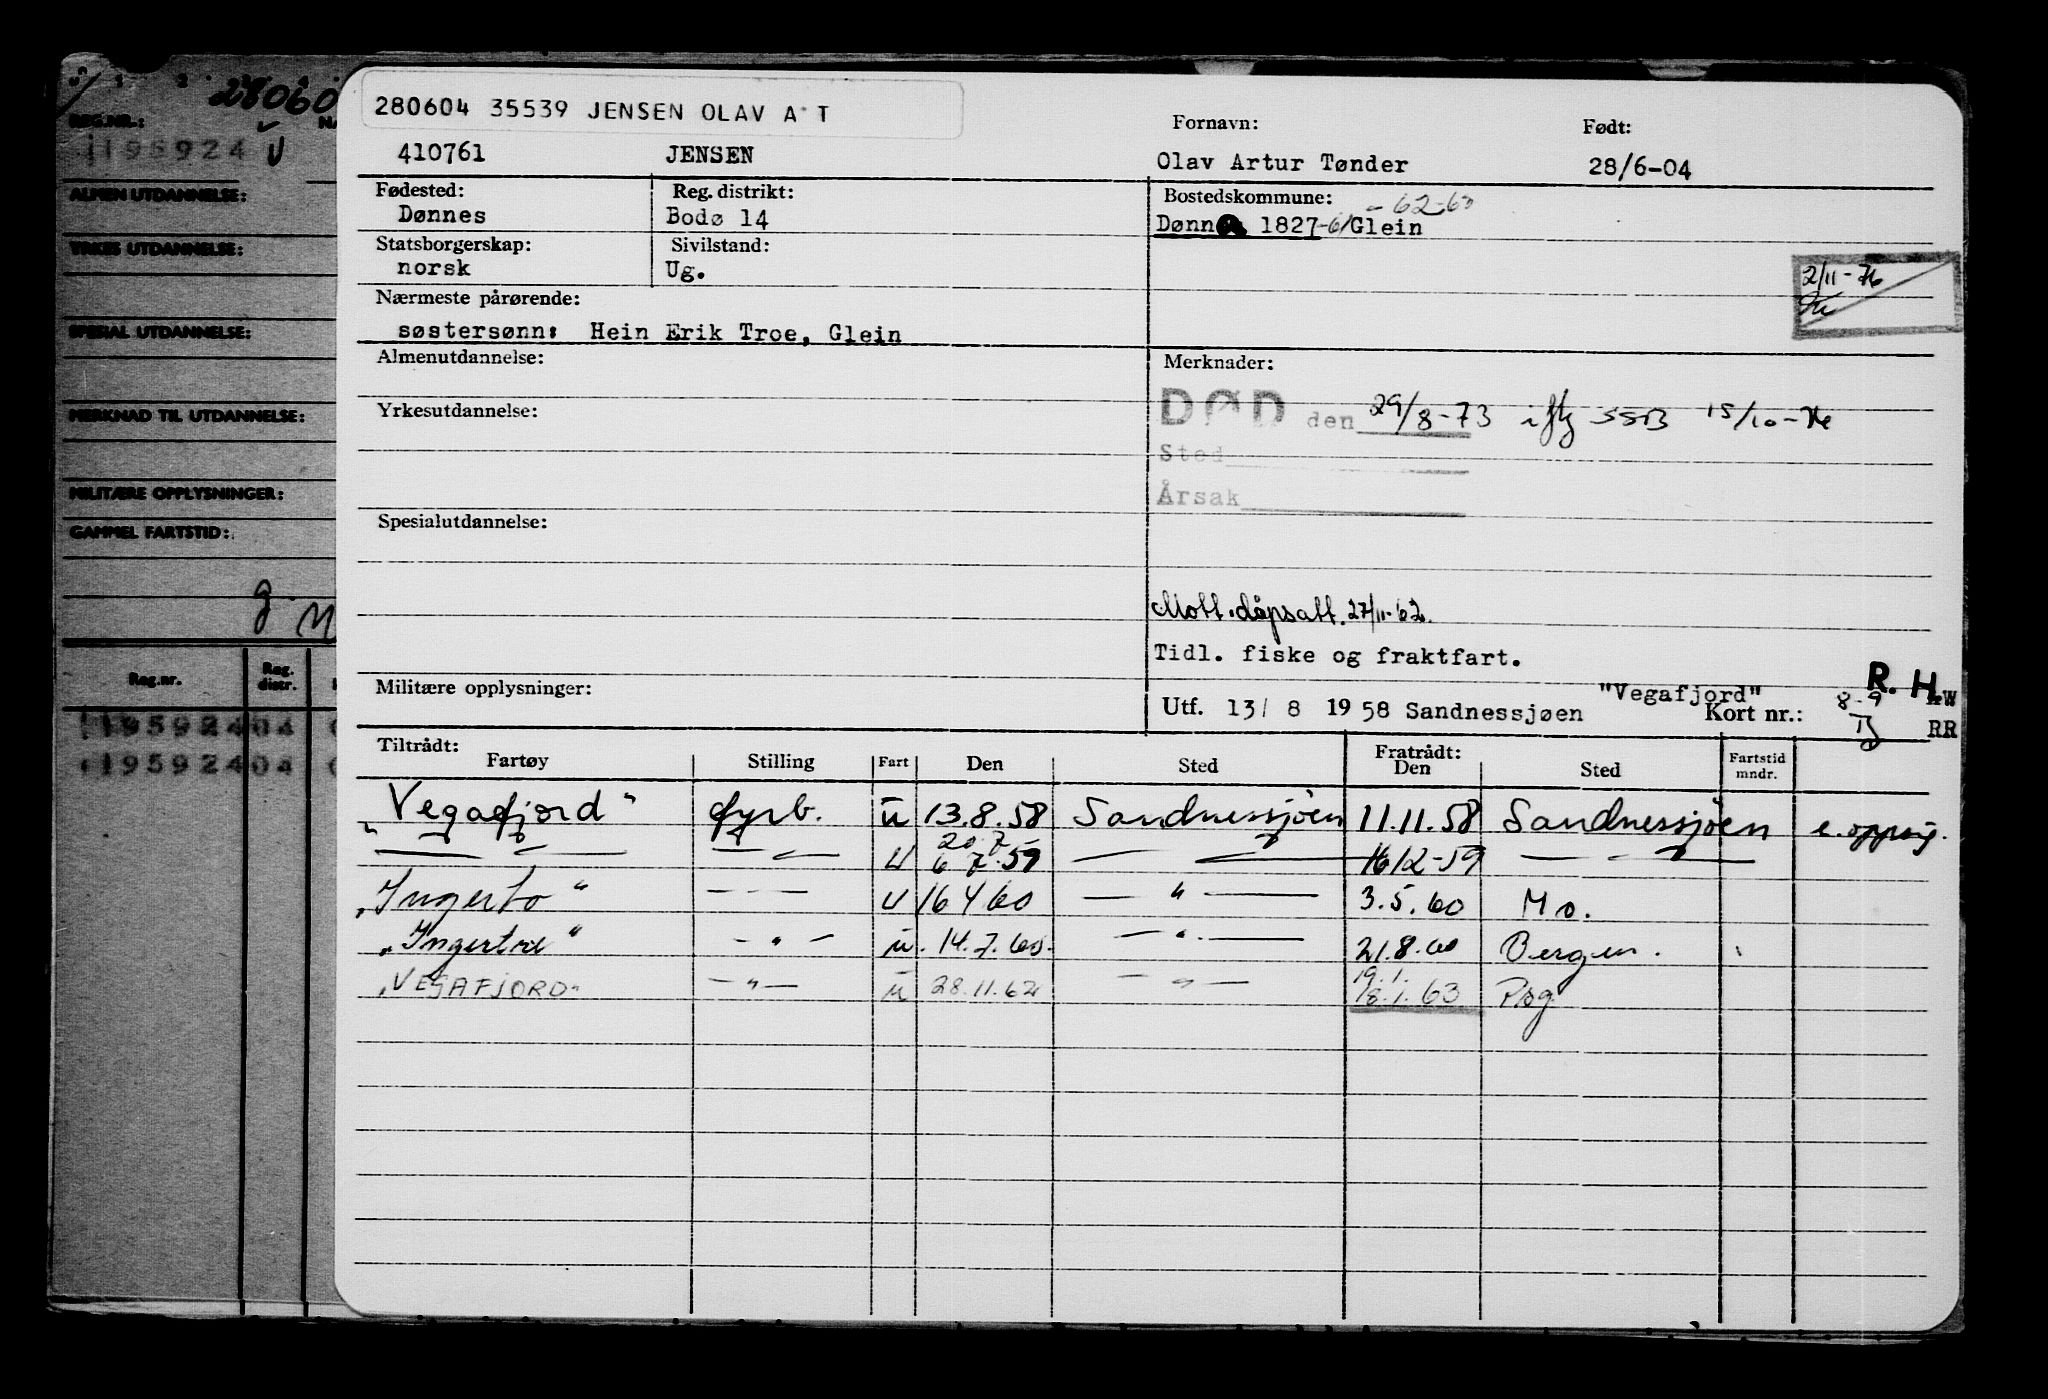 280604
REG.NR.:
195924 U
ALMEN UTDANNELSE:
YRKES UTDANNELSE:
SPESIAL UTDANNELSE:
MERKNAD TIL UTDANNELSE:
MILITÆRE OPPLYSNINGER:
GAMMEL FARTSTID:
Reg.nr. Reg. distr.
195924 04
195924 04
280604 35539 JENSEN OLAV A T
Fornavn: Født:
410761 JENSEN Olav Artur Tønder 28/6-04
Fødested: Reg. distrikt: Bostedskommune: - 62-63
Dønnes Bodø 14 1827-61 Glein
Statsborgerskap: Sivilstand:
norsk Ug.
2/11-76
Nærmeste pårørende:
søstersønn: Hein Erik Troe, Glein
Almenutdannelse: Merknader:
DØD den 29/8-73 iflg SSB 15/10-76
Yrkesutdannelse:
Sted
Årsak
Spesialutdannelse:
Mott. dåpsatt. 27/11-62.
Tidl. fiske og fraktfart.
R. H.
Militære opplysninger: "Vegafjord" 8-9
Utf. 13/8 1958 Sandnessjøen Kort nr.: RR
Tiltrådt: Fratrådt:
Fartøy Stilling Fart Den Sted Den Sted Fartstid mndr.
"Vegafjord" fyrb. u 13.8.58 Sandnessjøen 11.11.58 Sandnessjøen e. oppsig.
20.7
— " — — " — U 6 7.59 — " — 16 12-59 — " —
"Ingerto" — " — U 16 4 60 — " — 3.5.60 Mo.
"Ingertre" — " — u. 14.7.60. — " — 21.8.60 Bergen.
19.1.
"VEGAFJORD" — " — u 28.11.62 — " — 18.1.63 Psg.